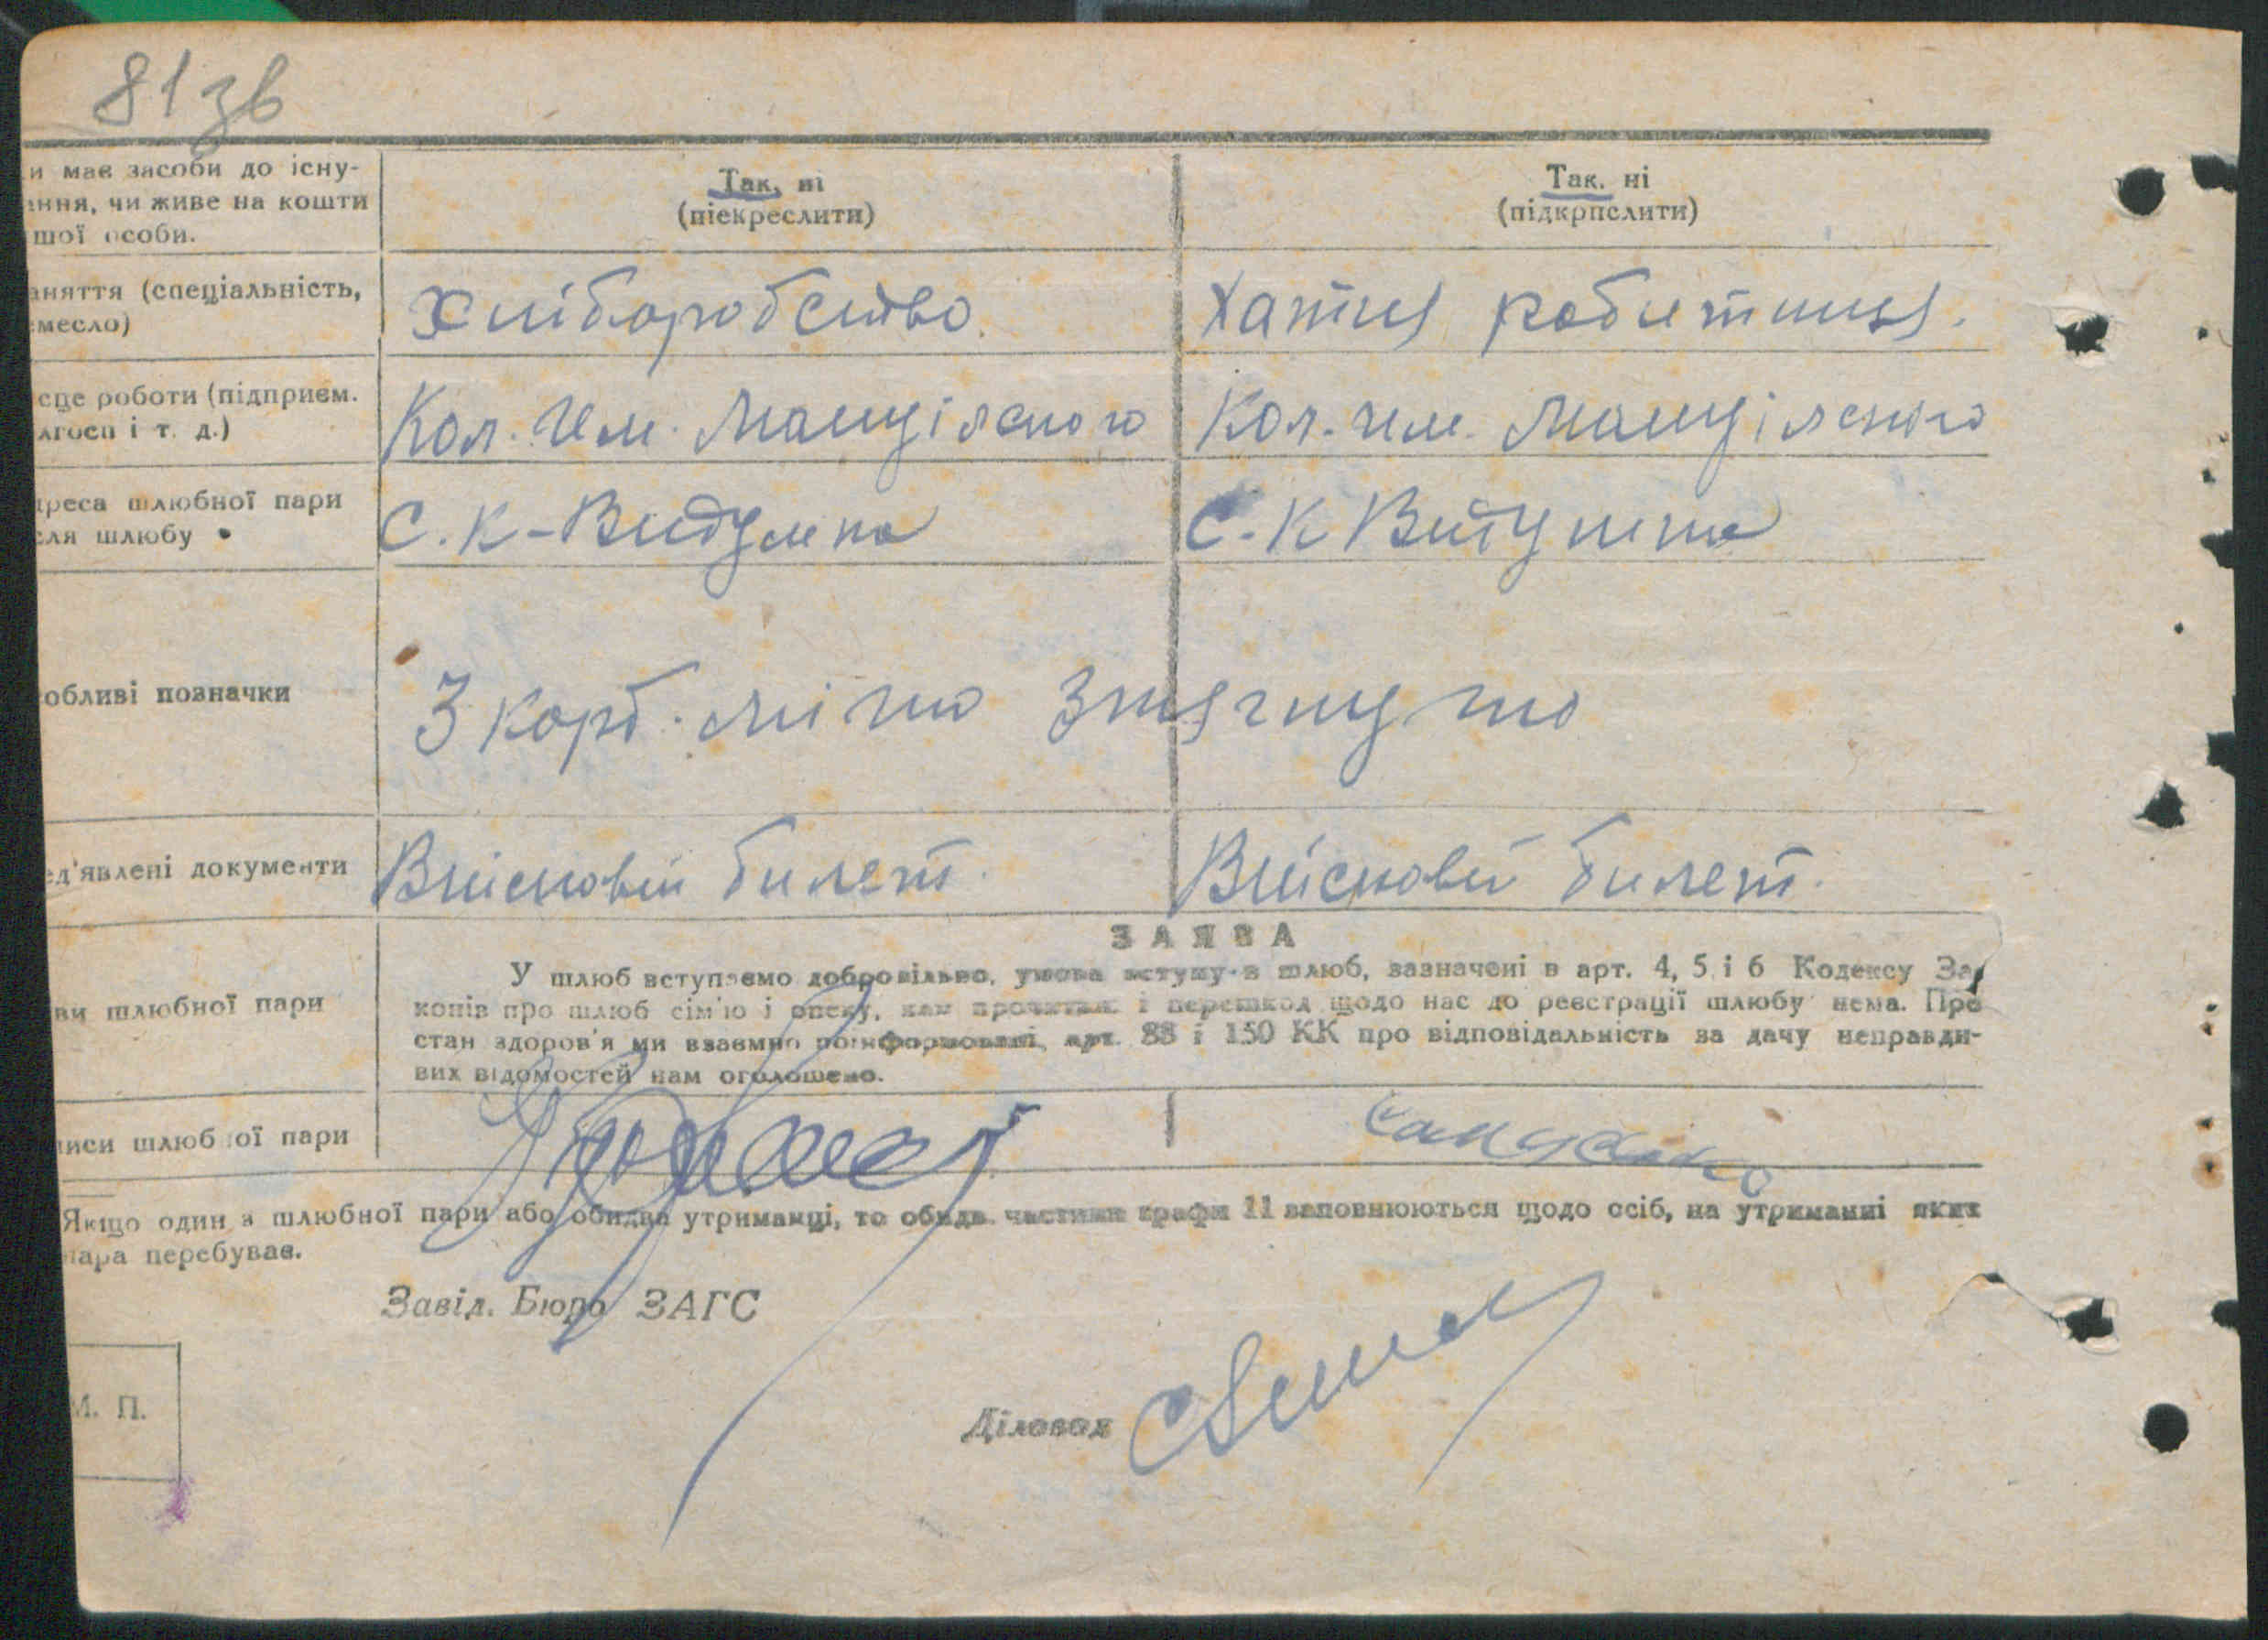 81 зв
и має засоби до існу-
ання, чи живе на кошти
шої особи.
Так, ні
(піекреслити)
Так. ні
(підкрпслити)
аняття (спеціальність,
емесло)
Хліборобство.
Хатня робитниця.
сце роботи (підприєм.
лгосп і т. д.)
Кол. Им.
Кол. им.
дреса шлюбної пари
сля шлюбу
С. К-Видумка
С. К Видумка
обливі позначки
3 карб. мито зтягнуто
ед'явлені документи
Військовий билет.
Військовий билет.
ЗАЯВА
ви шлюбної пари
У шлюб вступаємо добровільно, умова вступу в шлюб, зазначені в арт. 4, 5 і 6 Кодексу За
конів про шлюб сім'ю і опеку, нам прочитані і перешкод щодо нас до реєстрації шлюбу нема. Про
стан здоров'я ми взаємно поінформовані, арт. 88 і 150 КК про відповідальність за дачу неправди-
вих відомостей нам оголошено.
писи шлюбної пари
Якщо один з шлюбної пари або обидва утриманці, то обидв частини графи 11 заповнюються щодо осіб, на утриманні яких
пара перебуває.
Завід. Бюро ЗАГС
М. П.
Діловод